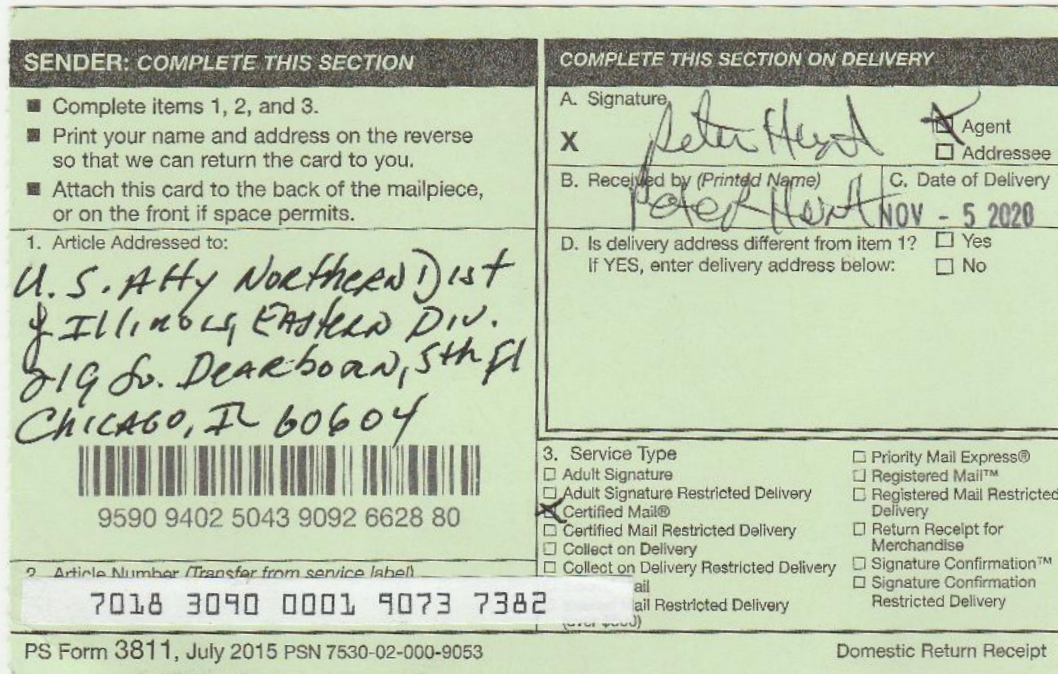 SENDER: COMPLETE THIS SECTION
■ Complete items 1, 2, and 3.
■ Print your name and address on the reverse
so that we can return the card to you.
■ Attach this card to the back of the mailpiece,
or on the front if space permits.
1. Article Addressed to:
U.S. Atty Northern Dist
of Illinois, Eastern Div.
219 So. Dearborn, 5th Fl
Chicago, IL 60604
9590 9402 5043 9092 6628 80
2. Article Number (Transfer from service label)
7018 3090 0001 9073 7382
PS Form 3811, July 2015 PSN 7530-02-000-9053
COMPLETE THIS SECTION ON DELIVERY
A. Signature
X
Agent
Addressee
B. Received by (Printed Name)
Peter
C. Date of Delivery
NOV - 5 2020
D. Is delivery address different from item 1? Yes
If YES, enter delivery address below: No
3. Service Type
Adult Signature
Adult Signature Restricted Delivery
Certified Mail®
Certified Mail Restricted Delivery
Collect on Delivery
Collect on Delivery Restricted Delivery
ail
ail Restricted Delivery
Priority Mail Express®
Registered Mail™
Registered Mail Restricted
Delivery
Return Receipt for
Merchandise
Signature Confirmation™
Signature Confirmation
Restricted Delivery
Domestic Return Receipt